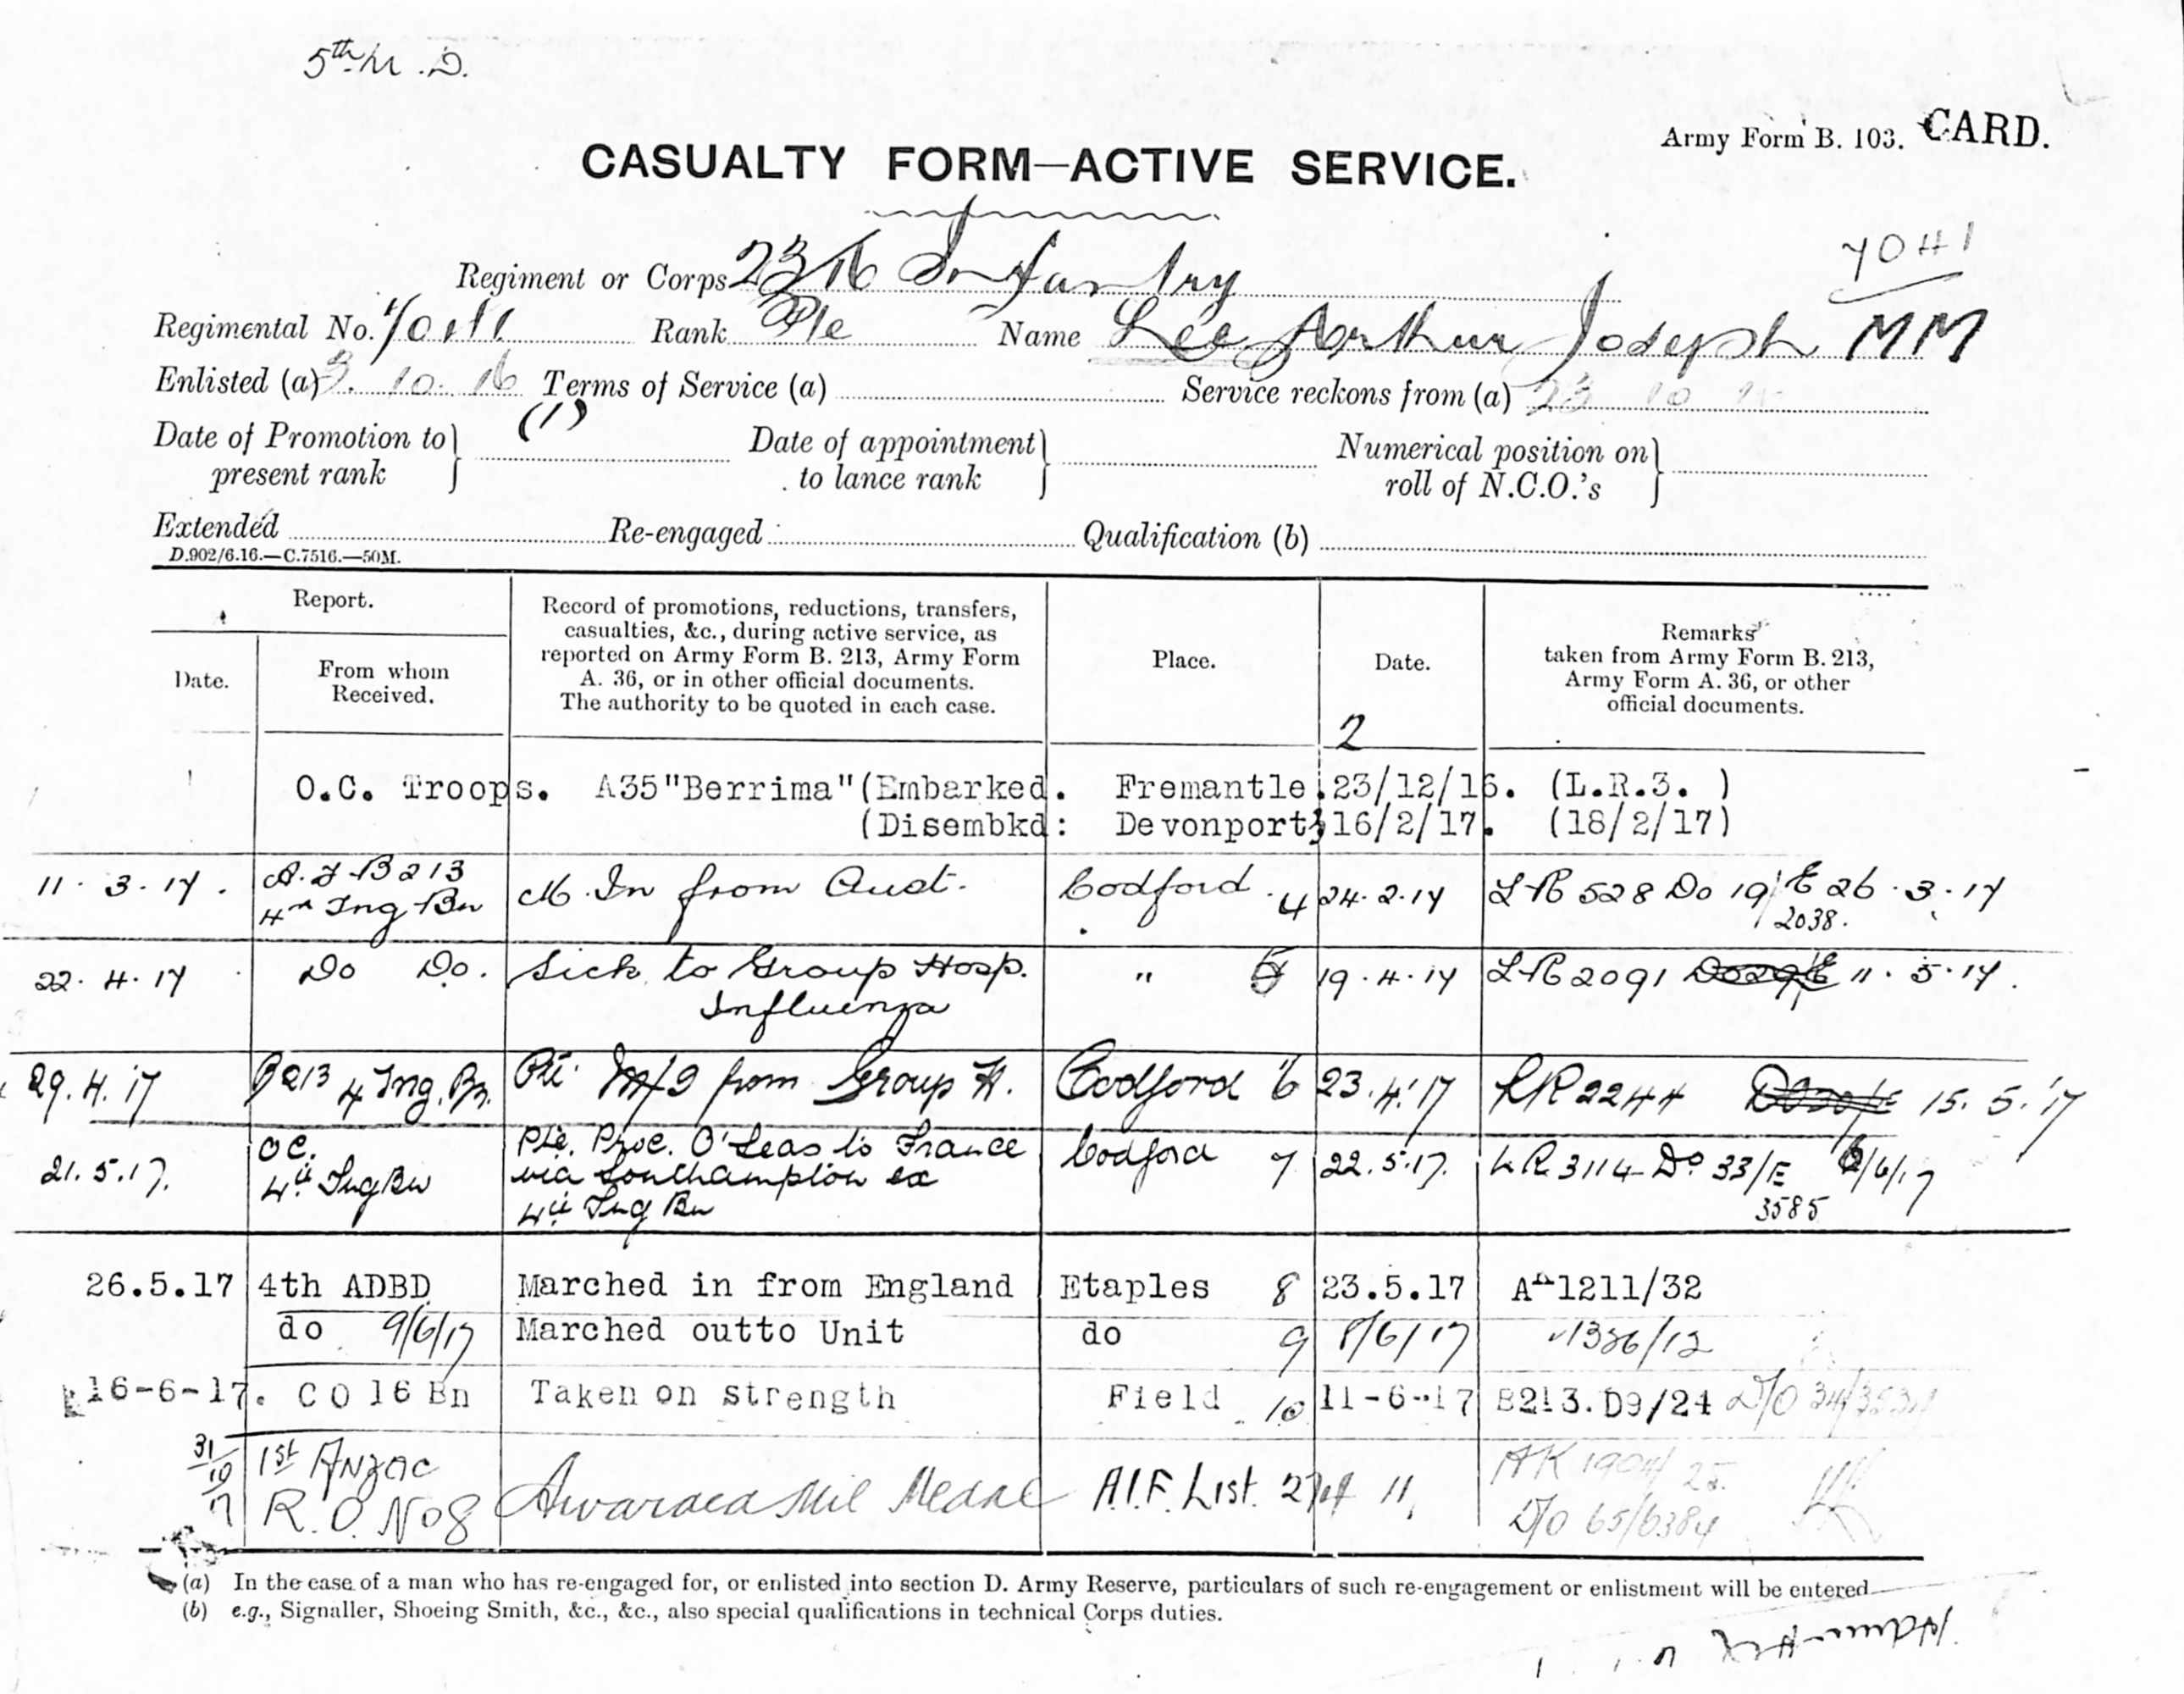 5th M.D.
Army Form B. 103. CARD.
CASUALTY FORM—ACTIVE SERVICE.
7041
Regiment or Corps Infantry
Regimental No. 7041 Rank Pte Name Lee Arthur Joseph MM
Enlisted (a) 3. 10. 16 Terms of Service (a) Service reckons from (a) 23 10
(1)
Date of Promotion to present rank } Date of appointment to lance rank } Numerical position on roll of N.C.O.'s }
Extended Re-engaged Qualification (b)
D.902/6.16.—C.7516.—50M.
Report.
Date.
From whom Received.
Record of promotions, reductions, transfers,
casualties, &c., during active service, as
reported on Army Form B. 213, Army Form
A. 36, or in other official documents.
The authority to be quoted in each case.
Place.
Date.
Remarks
taken from Army Form B. 213,
Army Form A. 36, or other
official documents.
2
O.C. Troops. A35 "Berrima" (Embarked. Fremantle. 23/12/16. (L.R.3. )
(Disembkd: Devonport; 16/2/17. (18/2/17)
11.3.17. A.F B213 M. In from Aust. Codford. 4 24.2.17 LR 528 Do 19/E 26.3.17
4th Tng Bn 2038.
22.4.17 Do Do. Sick to Group Hosp. " 5 19.4.17 LR 2091 11.5.17.
Influenza
29.4.17 B213 4 Tng. Bn. Pte. M/I from Group H. Codford 6 23.4.17 LR 2244 15.5.17
21.5.17. OC. Pte. Proc. O'Seas to France Codford 7 22.5.17. LR 3114 Do 33/E /6/17
4th Tng Bn via Southampton ex 3585
4th Tng Bn
26.5.17 4th ADBD Marched in from England Etaples 8 23.5.17 1211/32
do 9/6/17 Marched outto Unit do 9 8/6/17 1386/12
16-6-17. CO 16 Bn Taken on strength Field 10 11-6-17 B213.D9/24 D/O
31/10/17 1st Anzac Awarded Mil Medal A.I.F. List 11.
R.O. No 8 D/O 65/6384
(a) In the case of a man who has re-engaged for, or enlisted into section D. Army Reserve, particulars of such re-engagement or enlistment will be entered
(b) e.g., Signaller, Shoeing Smith, &c., &c., also special qualifications in technical Corps duties.